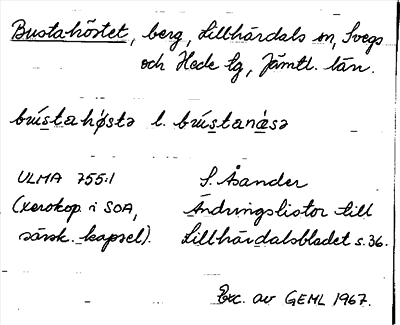 Bustahöstet, berg, Lillhärdals sn, Svegs
och Hede tg, Jämtl. län.
bu̇́stahø̀stə l. bu̇́stanásə
ULMA 755:1 S. Åsander
(xerokop. i SOA, Ändringslistor till
särsk. kapsel). Lillhärdalsbladet s. 36.
Exc. av GEML 1967.